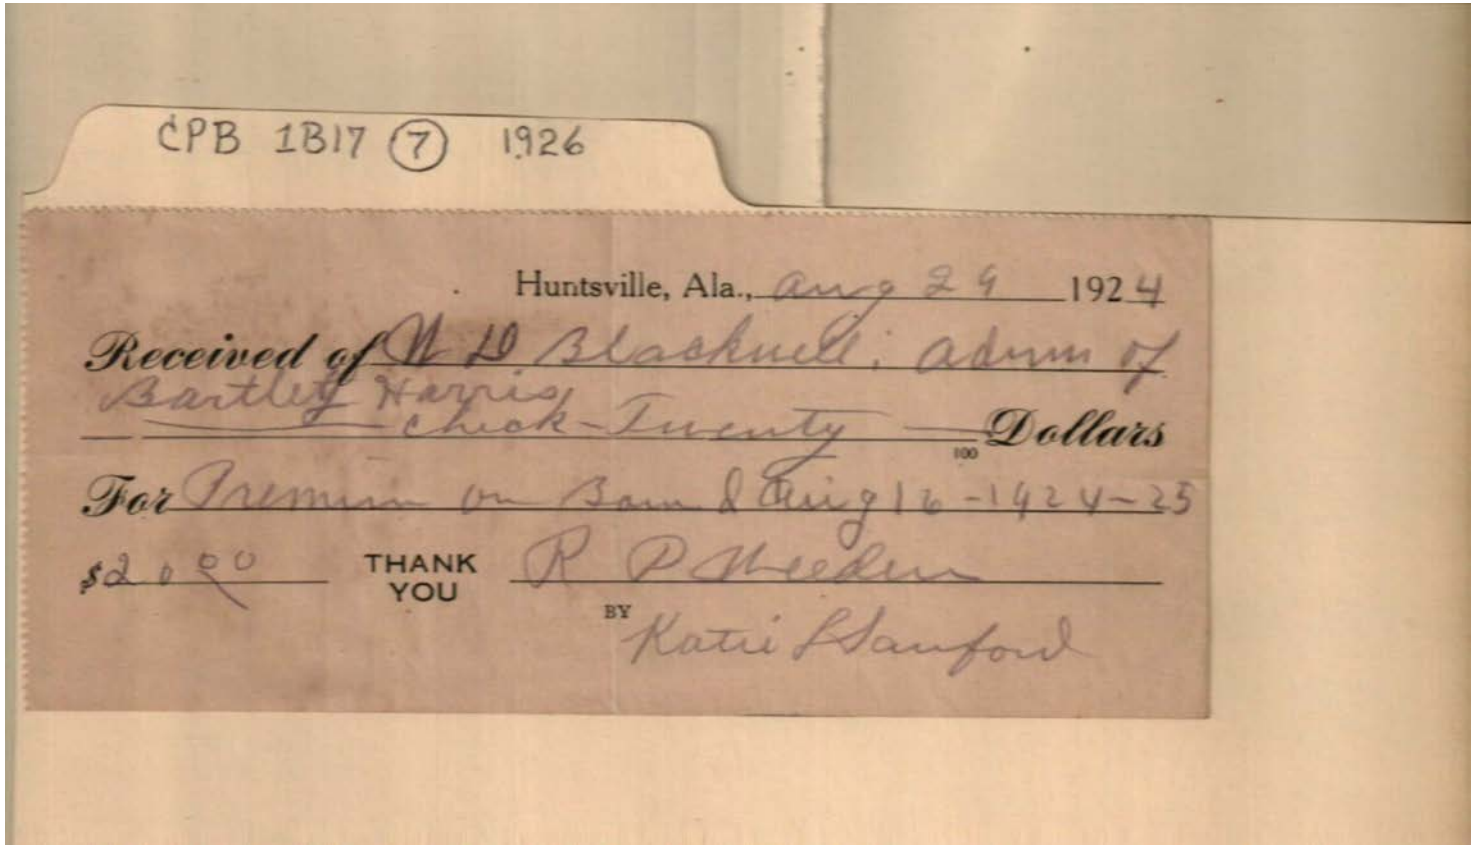 CPB 1B17 7 1926
Huntsville, Ala., Aug 29 1924
Received of W D Blackwell, Admn of
Bartley Harris
Check - Twenty Dollars
100
For Premium on Bond Aug 16 - 1924-25
$20.00 THANK YOU R P Weeden
BY Katie L Sanford